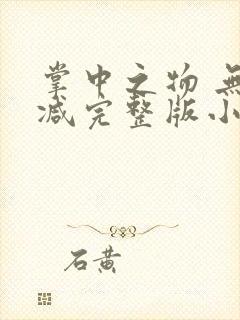 掌中之物 無
减完整版小
石黄